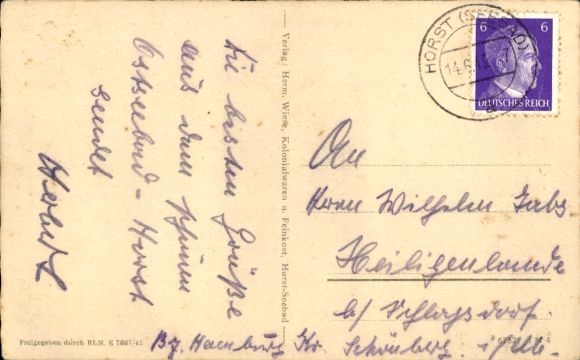 Die besten Grüße
aus dem schönen
Ostseebad - Horst
sendet
Herbert
Verlag: Herm. Wiese, Kolonialwaren u. Feinkost, Horst-Seebad
HORST (SEEBAD)
14.6.
6 6
DEUTSCHES REICH
An
Herrn Wilhelm
Heiligenlande
b/ Schlagsdorf.
Kr. Schönberg
Bz. Hamburg
Freigegeben durch RLM. E 7667/42